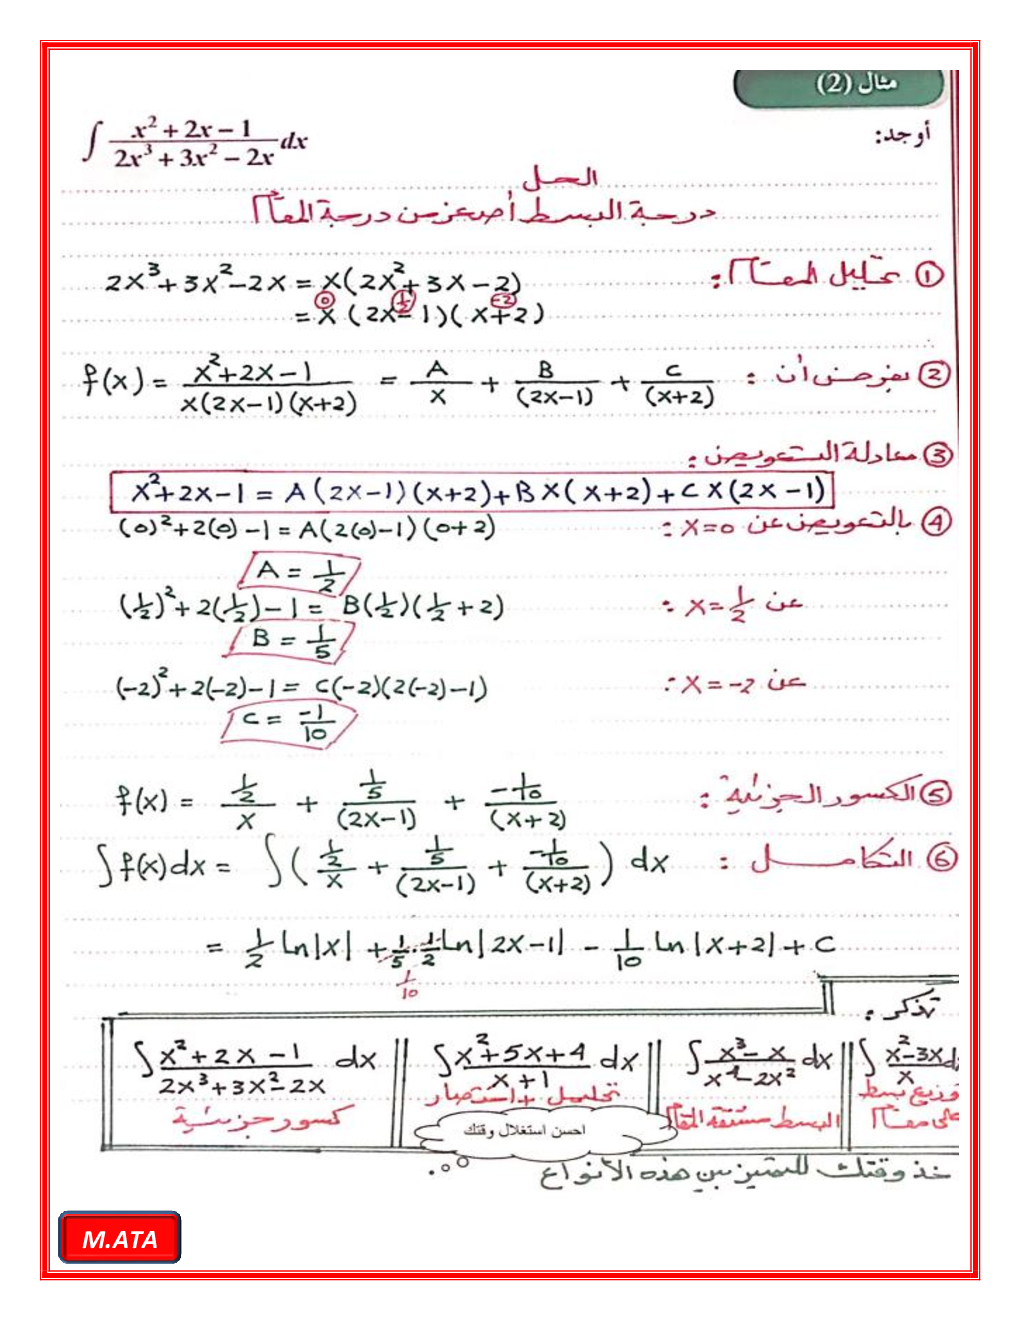 مثال (2)
أوجد:
∫ (x² + 2x − 1)/(2x³ + 3x² − 2x) dx
الحل
درجة البسط أصغر من درجة المقام
① تحليل المقام :
2x³ + 3x² − 2x = x(2x² + 3x − 2)
0 1/2 −2
= x (2x − 1)(x + 2)
② بفرض أن :
f(x) = (x² + 2x − 1)/(x(2x−1)(x+2)) = A/x + B/(2x−1) + C/(x+2)
③ معادلة التعويض :
x² + 2x − 1 = A(2x−1)(x+2) + Bx(x+2) + Cx(2x−1)
④ بالتعويض عن x=0 :
(0)² + 2(0) − 1 = A(2(0)−1)(0+2)
A = 1/2
عن x = 1/2 :
(1/2)² + 2(1/2) − 1 = B(1/2)(1/2 + 2)
B = 1/5
عن x = −2 :
(−2)² + 2(−2) − 1 = C(−2)(2(−2)−1)
C = −1/10
⑤ الكسور الجزئية :
f(x) = (1/2)/x + (1/5)/(2x−1) + (−1/10)/(x+2)
⑥ التكامل :
∫f(x)dx = ∫( (1/2)/x + (1/5)/(2x−1) + (−1/10)/(x+2) ) dx
= 1/2 ln|x| + 1/5 · 1/2 ln|2x−1| − 1/10 ln|x+2| + C
1/10
تذكر :
∫ (x² + 2x − 1)/(2x³ + 3x² − 2x) dx
كسور جزئية
∫ (x² + 5x + 4)/(x + 1) dx
تحليل + اختصار
∫ (x³ − x)/(x⁴ − 2x²) dx
البسط مشتقة المقام
∫ (x² − 3x)/x d
توزيع بسط
على مقام
احسن استغلال وقتك
خذ وقتك للتمييز بين هذه الأنواع
M.ATA